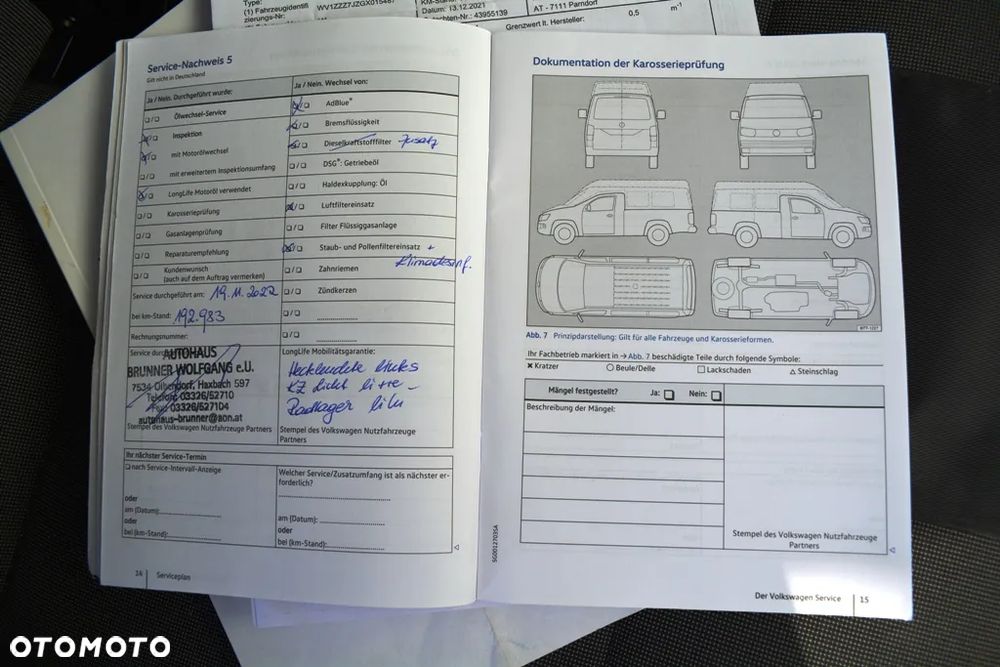 Type:
(1) Fahrzeugidentifi
zierungs-Nr.:
WV1ZZZ7JZGX015487
KM-Stand:
Datum: 13.12.2021
Gutachten-Nr.: 43955139
AT - 7111 Parndorf
Grenzwert lt. Hersteller:
0,5 m⁻¹
Service-Nachweis 5
Gilt nicht in Deutschland
Ja / Nein. Durchgeführt wurde:
Ölwechsel-Service
Inspektion
mit Motorölwechsel
mit erweitertem Inspektionsumfang
LongLife Motoröl verwendet
Karosserieprüfung
Gasanlagenprüfung
Reparaturempfehlung
Kundenwunsch
(auch auf dem Auftrag vermerken)
Service durchgeführt am: 19.11.2022
bei km-Stand: 192.983
Rechnungsnummer:
Service durch
AUTOHAUS
BRUNNER WOLFGANG e.U.
7534 Olbendorf, Haxbach 597
Telefon 03326/52710
Fax 03326/527104
autohaus-brunner@aon.at
Stempel des Volkswagen Nutzfahrzeuge
Partners
Ja / Nein. Wechsel von:
AdBlue®
Bremsflüssigkeit
Dieselkraftstofffilter Zusatz
DSG®: Getriebeöl
Haldexkupplung: Öl
Luftfiltereinsatz
Filter Flüssiggasanlage
Staub- und Pollenfiltereinsatz +
Klimadesinf.
Zahnriemen
Zündkerzen
LongLife Mobilitätsgarantie:
KZ Licht
Radlager
Stempel des Volkswagen Nutzfahrzeuge
Partners
Ihr nächster Service-Termin
nach Service-Intervall-Anzeige
oder
am (Datum):
oder
bei (km-Stand):
Welcher Service/Zusatzumfang ist als nächster er-
forderlich?
am (Datum):
oder
bei (km-Stand):
14 Serviceplan
Dokumentation der Karosserieprüfung
B7T-1207
Abb. 7 Prinzipdarstellung: Gilt für alle Fahrzeuge und Karosserieformen.
Ihr Fachbetrieb markiert in → Abb. 7 beschädigte Teile durch folgende Symbole:
Kratzer Beule/Delle Lackschaden Steinschlag
Mängel festgestellt? Ja: Nein:
Beschreibung der Mängel:
Stempel des Volkswagen Nutzfahrzeuge
Partners
SG0012703SA
Der Volkswagen Service 15
OTOMOTO